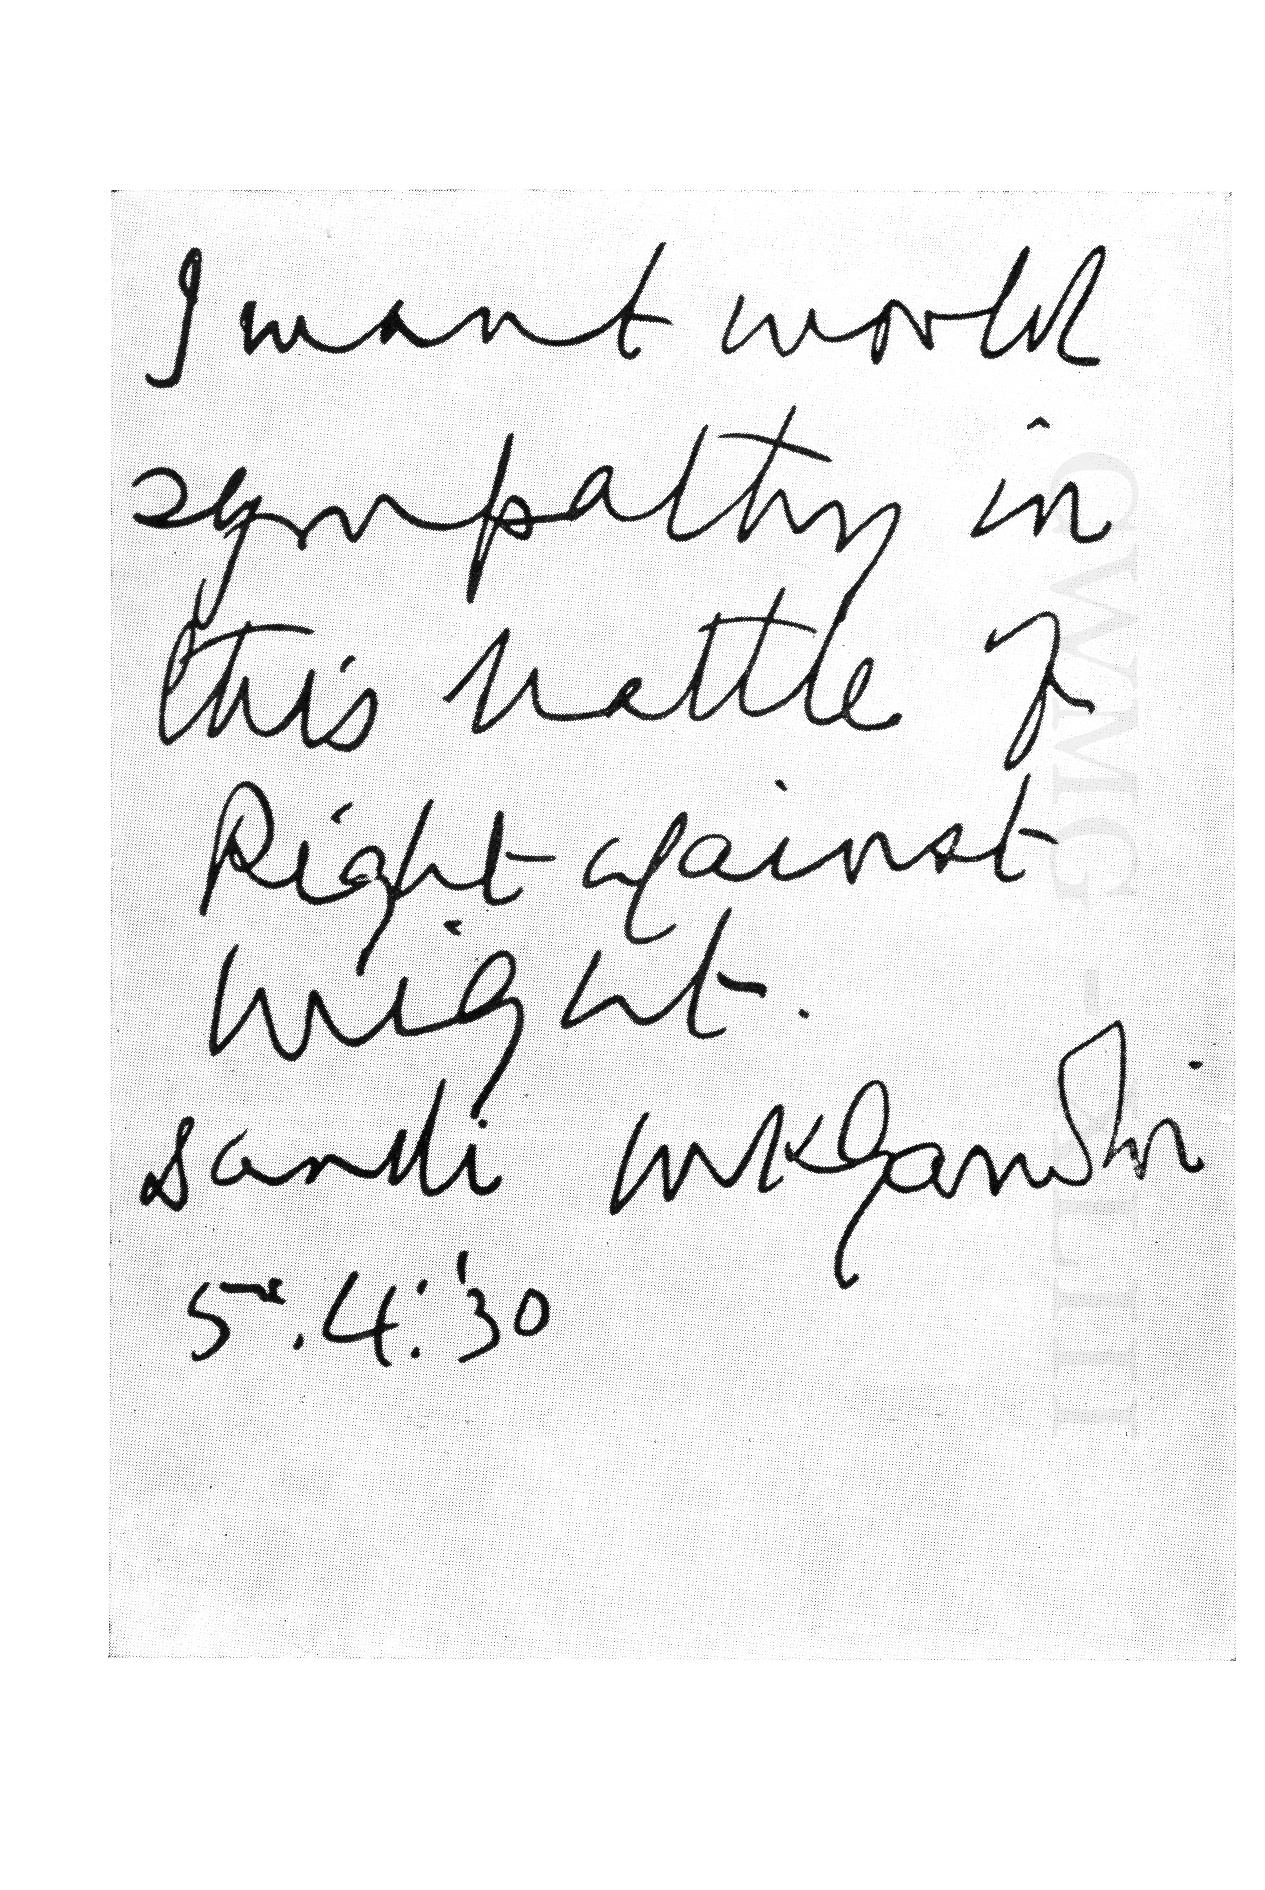 I want world
sympathy in
this battle of
Right against
might.
Sandi MKGandhi
5.4.'30